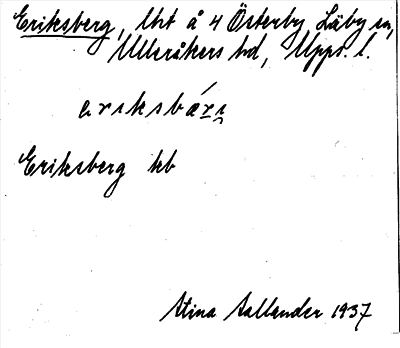 Eriksberg, lht å 4 Österby, Läby sn,
Ulleråkers hd, Upps. l.
eriksbæri
Eriksberg kb
Stina Aallander 1937